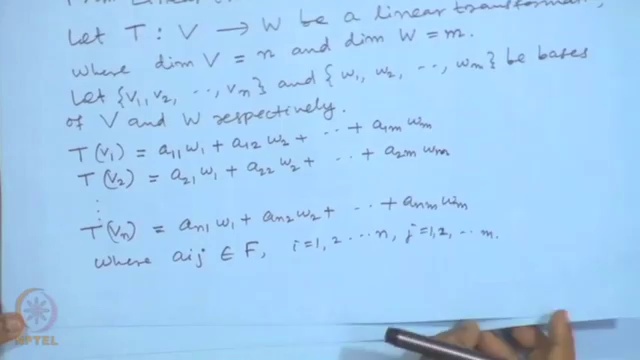 Let T : V → W be a linear transformation,
where dim V = n and dim W = m.
Let {v₁, v₂, ⋯, vₙ} and {w₁, w₂, ⋯, wₘ} be bases
of V and W respectively.
T(v₁) = a₁₁w₁ + a₁₂w₂ + ⋯ + a₁ₘwₘ
T(v₂) = a₂₁w₁ + a₂₂w₂ + ⋯ + a₂ₘwₘ
⋮
T(vₙ) = aₙ₁w₁ + aₙ₂w₂ + ⋯ + aₙₘwₘ
where aij ∈ F, i=1,2⋯n, j=1,2,⋯m.
NPTEL